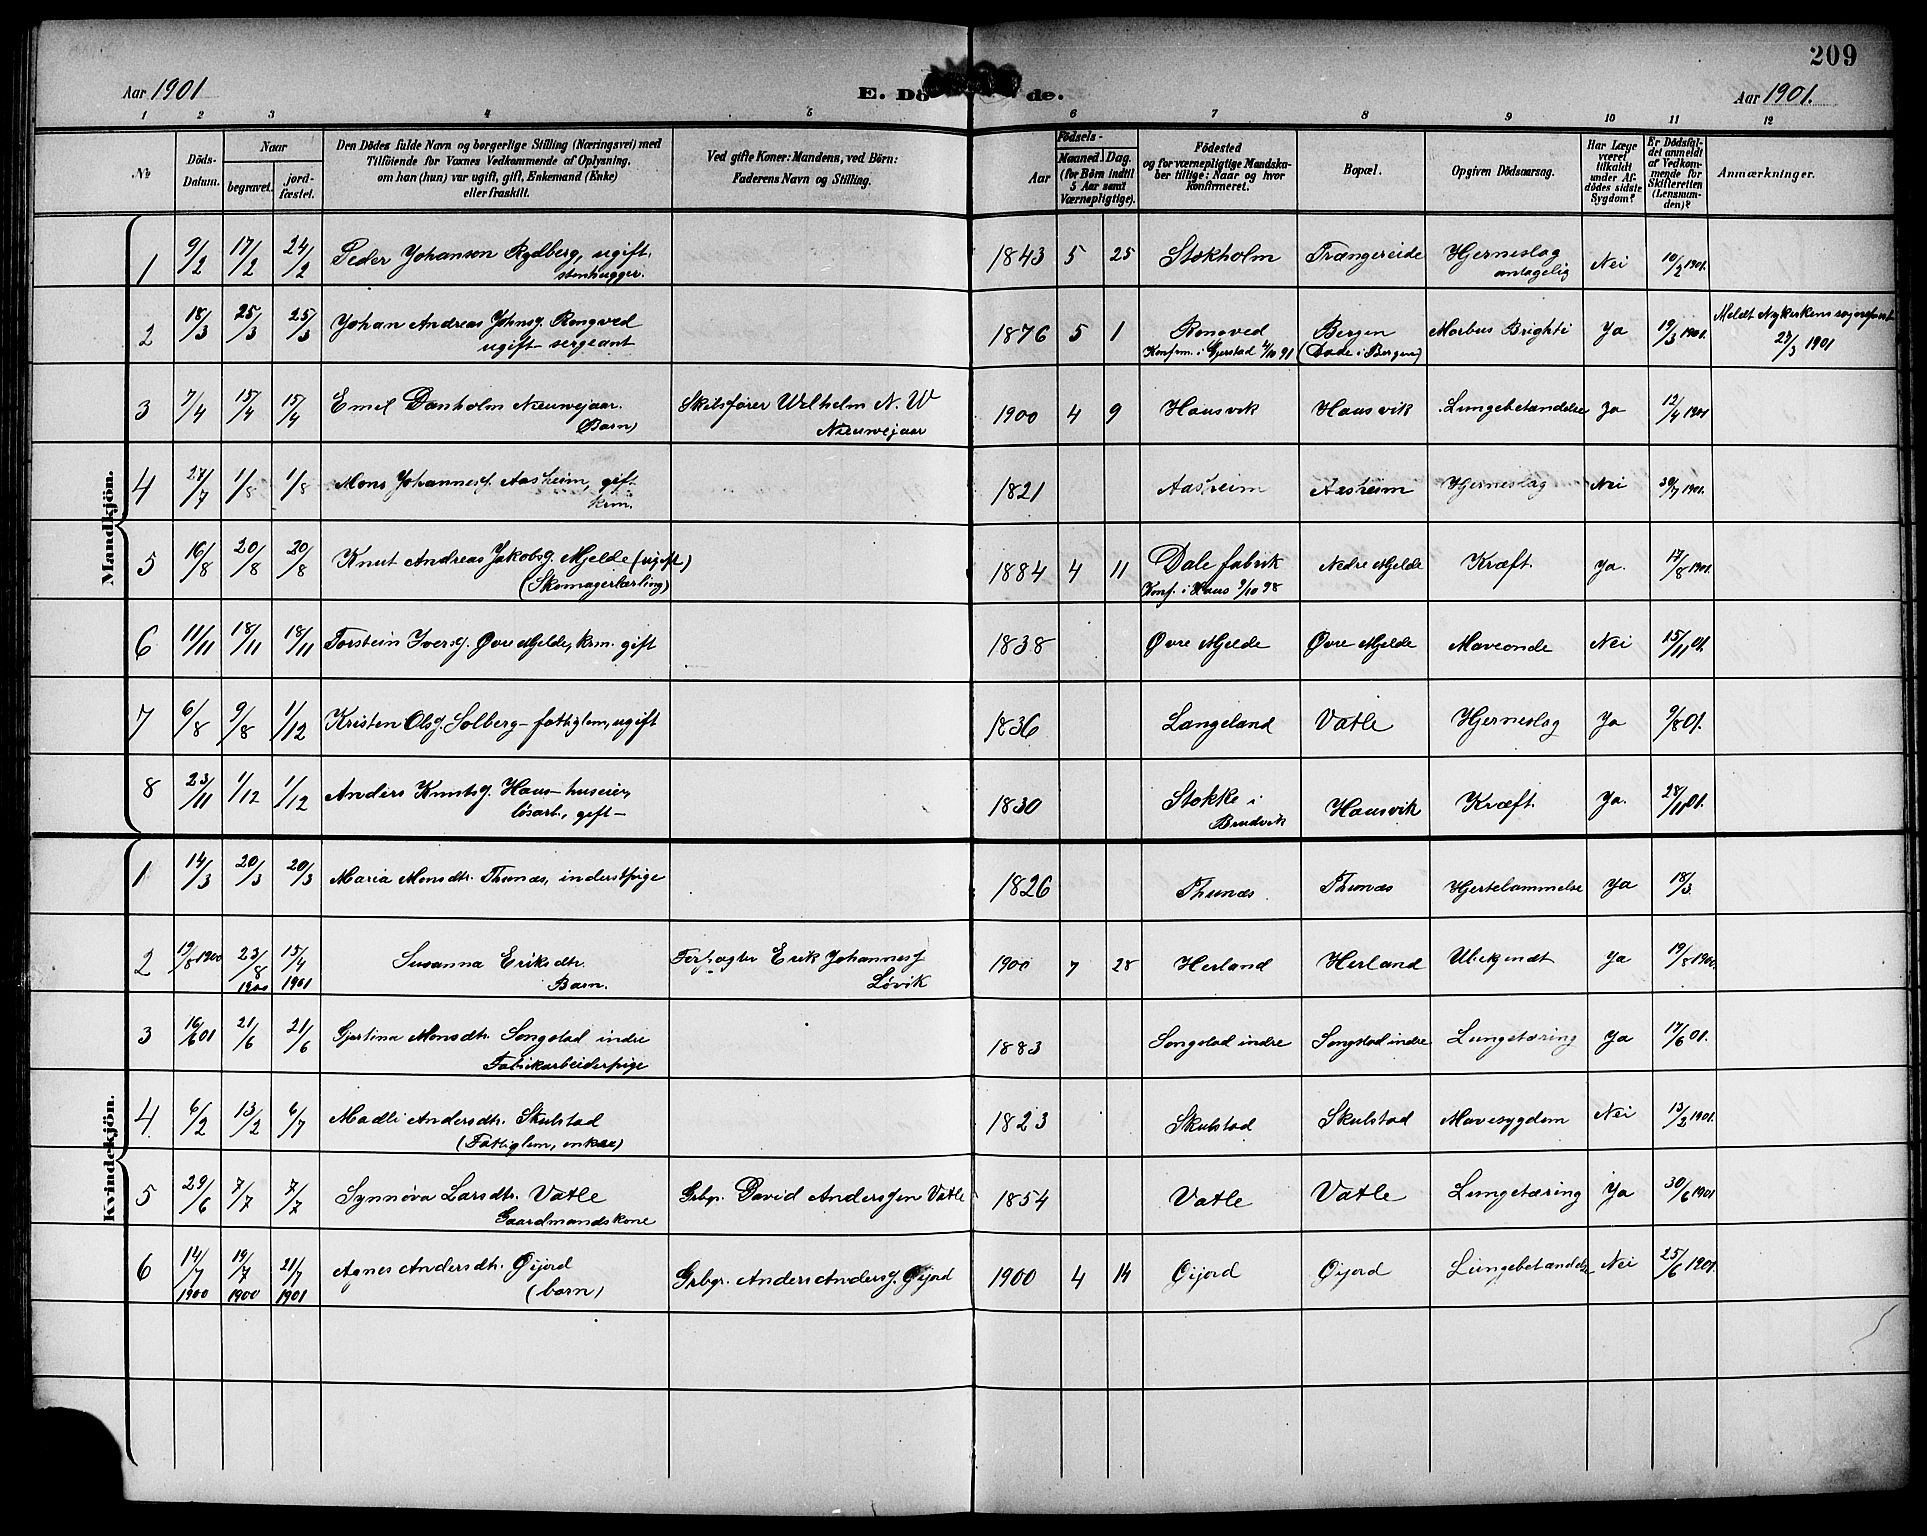 209
Aar 1901
E. Dö de.
Aar 1901.
1 2 3 4 5 6 7 8 9 10 11 12
No
Döds-Datum.
Naar
begravet.
jordfæstet.
Den Dödes fulde Navn og borgerlige Stilling (Næringsvei) med
Tilföiende for Voxnes Vedkommende af Oplysning,
om han (hun) var ugift, gift, Enkemand (Enke)
eller fraskilt.
Ved gifte Koner: Mandens, ved Börn:
Faderens Navn og Stilling.
Födsels-
Aar
Maaned. Dag.
(for Börn indtil
5 Aar samt
Værnepligtige).
Födested
og for værnepligtige Mandska-
ber tillige: Naar og hvor
konfirmeret.
Bopæl.
Opgiven Dödsaarsag.
Har Læge
været
tilkaldt
under Af-
dödes sidste
Sygdom?
Er Dödsfal-
det anmeldt
af Vedkom-
mende for
Skifteretten
(Lensman-
den)?
Anmærkninger.
Mandkjön.
1 9/2 17/2 24/2 Peder Johanson Rydberg, ugift, 1843 5 25 Stokholm Trængereide Hjerneslag Nei 10/2 1901.
stenhugger. antagelig
2 18/3 25/3 25/3 Johan Andreas Johnsg. Rongved 1876 5 1 Rongved Bergen Morbus Brighti Ja 19/3 1901. Meldt Nykirkens sogneprest
ugift sergeant Konfirm. i Gjerstad 4/10 91 (Døde i Bergen) 27/3 1901
3 7/4 15/4 15/4 Emil Danholm Nieuwejaar. Skibsfører Wilhelm N. W 1900 4 9 Hausvik Hausvik Lungebetændelse Ja 12/4 1901
(Barn) Nieuwejaar
4 27/7 1/8 1/8 Mons Johannesg. Aasheim, gift 1821 Aasheim Aasheim Hjerneslag Nei 30/7 1901.
krm.
5 16/8 20/8 20/8 Knut Andreas Jakobsg. Mjelde (ugift) 1884 4 11 Dale fabrik Nedre Mjelde Kræft. Ja. 17/8 1901.
(Skomagerlærling) Konf. i Haus 9/10 98
6 11/11 18/11 18/11 Torstein Iversg. Øvre Mjelde, krm. gift 1838 Øvre Mjelde Øvre Mjelde Maveonde Nei 15/11 01.
7 6/8 9/8 1/12 Kristen Olsg. Solberg- fattiglem, ugift 1836 Langeland Vatle Hjerneslag Ja 9/8 01.
8 23/11 1/12 1/12 Anders Knutsg. Haus- huseier, 1830 Stokke i Hausvik Kræft. Ja. 28/11 01.
løsarb., gift- Brudvik
Kvindekjön.
1 14/3 20/3 20/3 Maria Monsdtr. Thunæs, inderstpige 1826 Thunæs Thunæs Hjertelammelse Ja 18/3.
2 19/8 1900 23/8 1900 15/4 1901 Susanna Eriksdtr. Forpagter Erik Johannesg 1900 7 28 Herland Herland Ubekjendt Ja 19/8 1900.
Barn. Løvik
3 16/6 01 21/6 21/6 Gjertina Monsdtr. Songstad indre 1883 Songstad indre Songstad indre Lungetæring Ja 17/6 01.
Fabrikarbeiderpige
4 6/2 13/2 6/7 Madli Andersdtr. Skulstad 1823 Skulstad Skulstad Mavesygdom Nei 13/2 1901.
(Fattiglem, enke)
5 29/6 7/7 7/7 Synnøva Larsdtr. Vatle Grbgr. David Andersgen Vatle 1854 Vatle Vatle Lungetæring Ja 30/6 1901
Gaardmandskone
6 14/7 1900 19/7 1900 21/7 1901 Agnes Andersdtr. Øijord Grbgr. Anders Andersg. Øijord 1900 4 14 Øijord Øijord Lungebetændelse Nei 25/6 1901.
(barn)